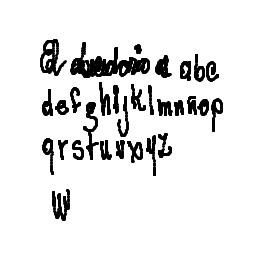 El abecedario e abc
defghijklmnñop
qrstuvxyz
w